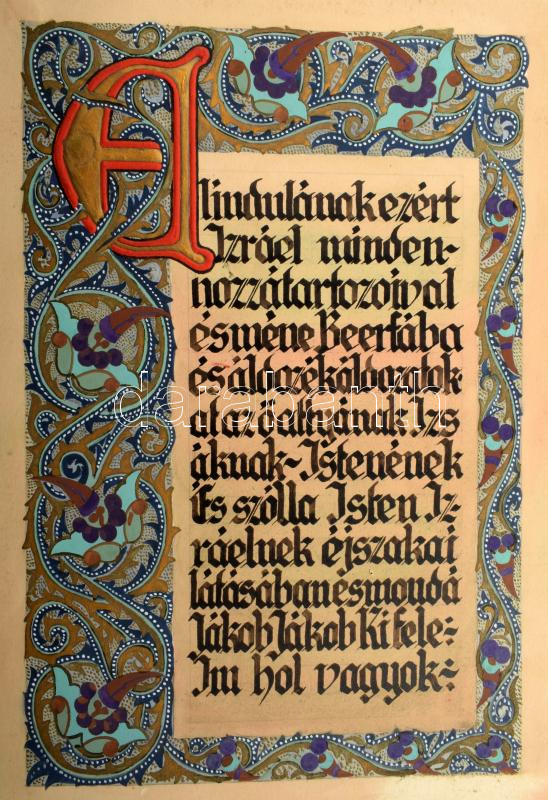 Elindulának ezért
Izráel minden-
hozzátartozoival
és méne Beersába
és áldozék áldozatok
at az ő atyjának Izs
áknak- Istenének
És szólla Isten Iz-
ráelnek éjszakai
látásában és mondá
Jákob Jákob Ki fele=
Im hol vagyok-:
darabanth